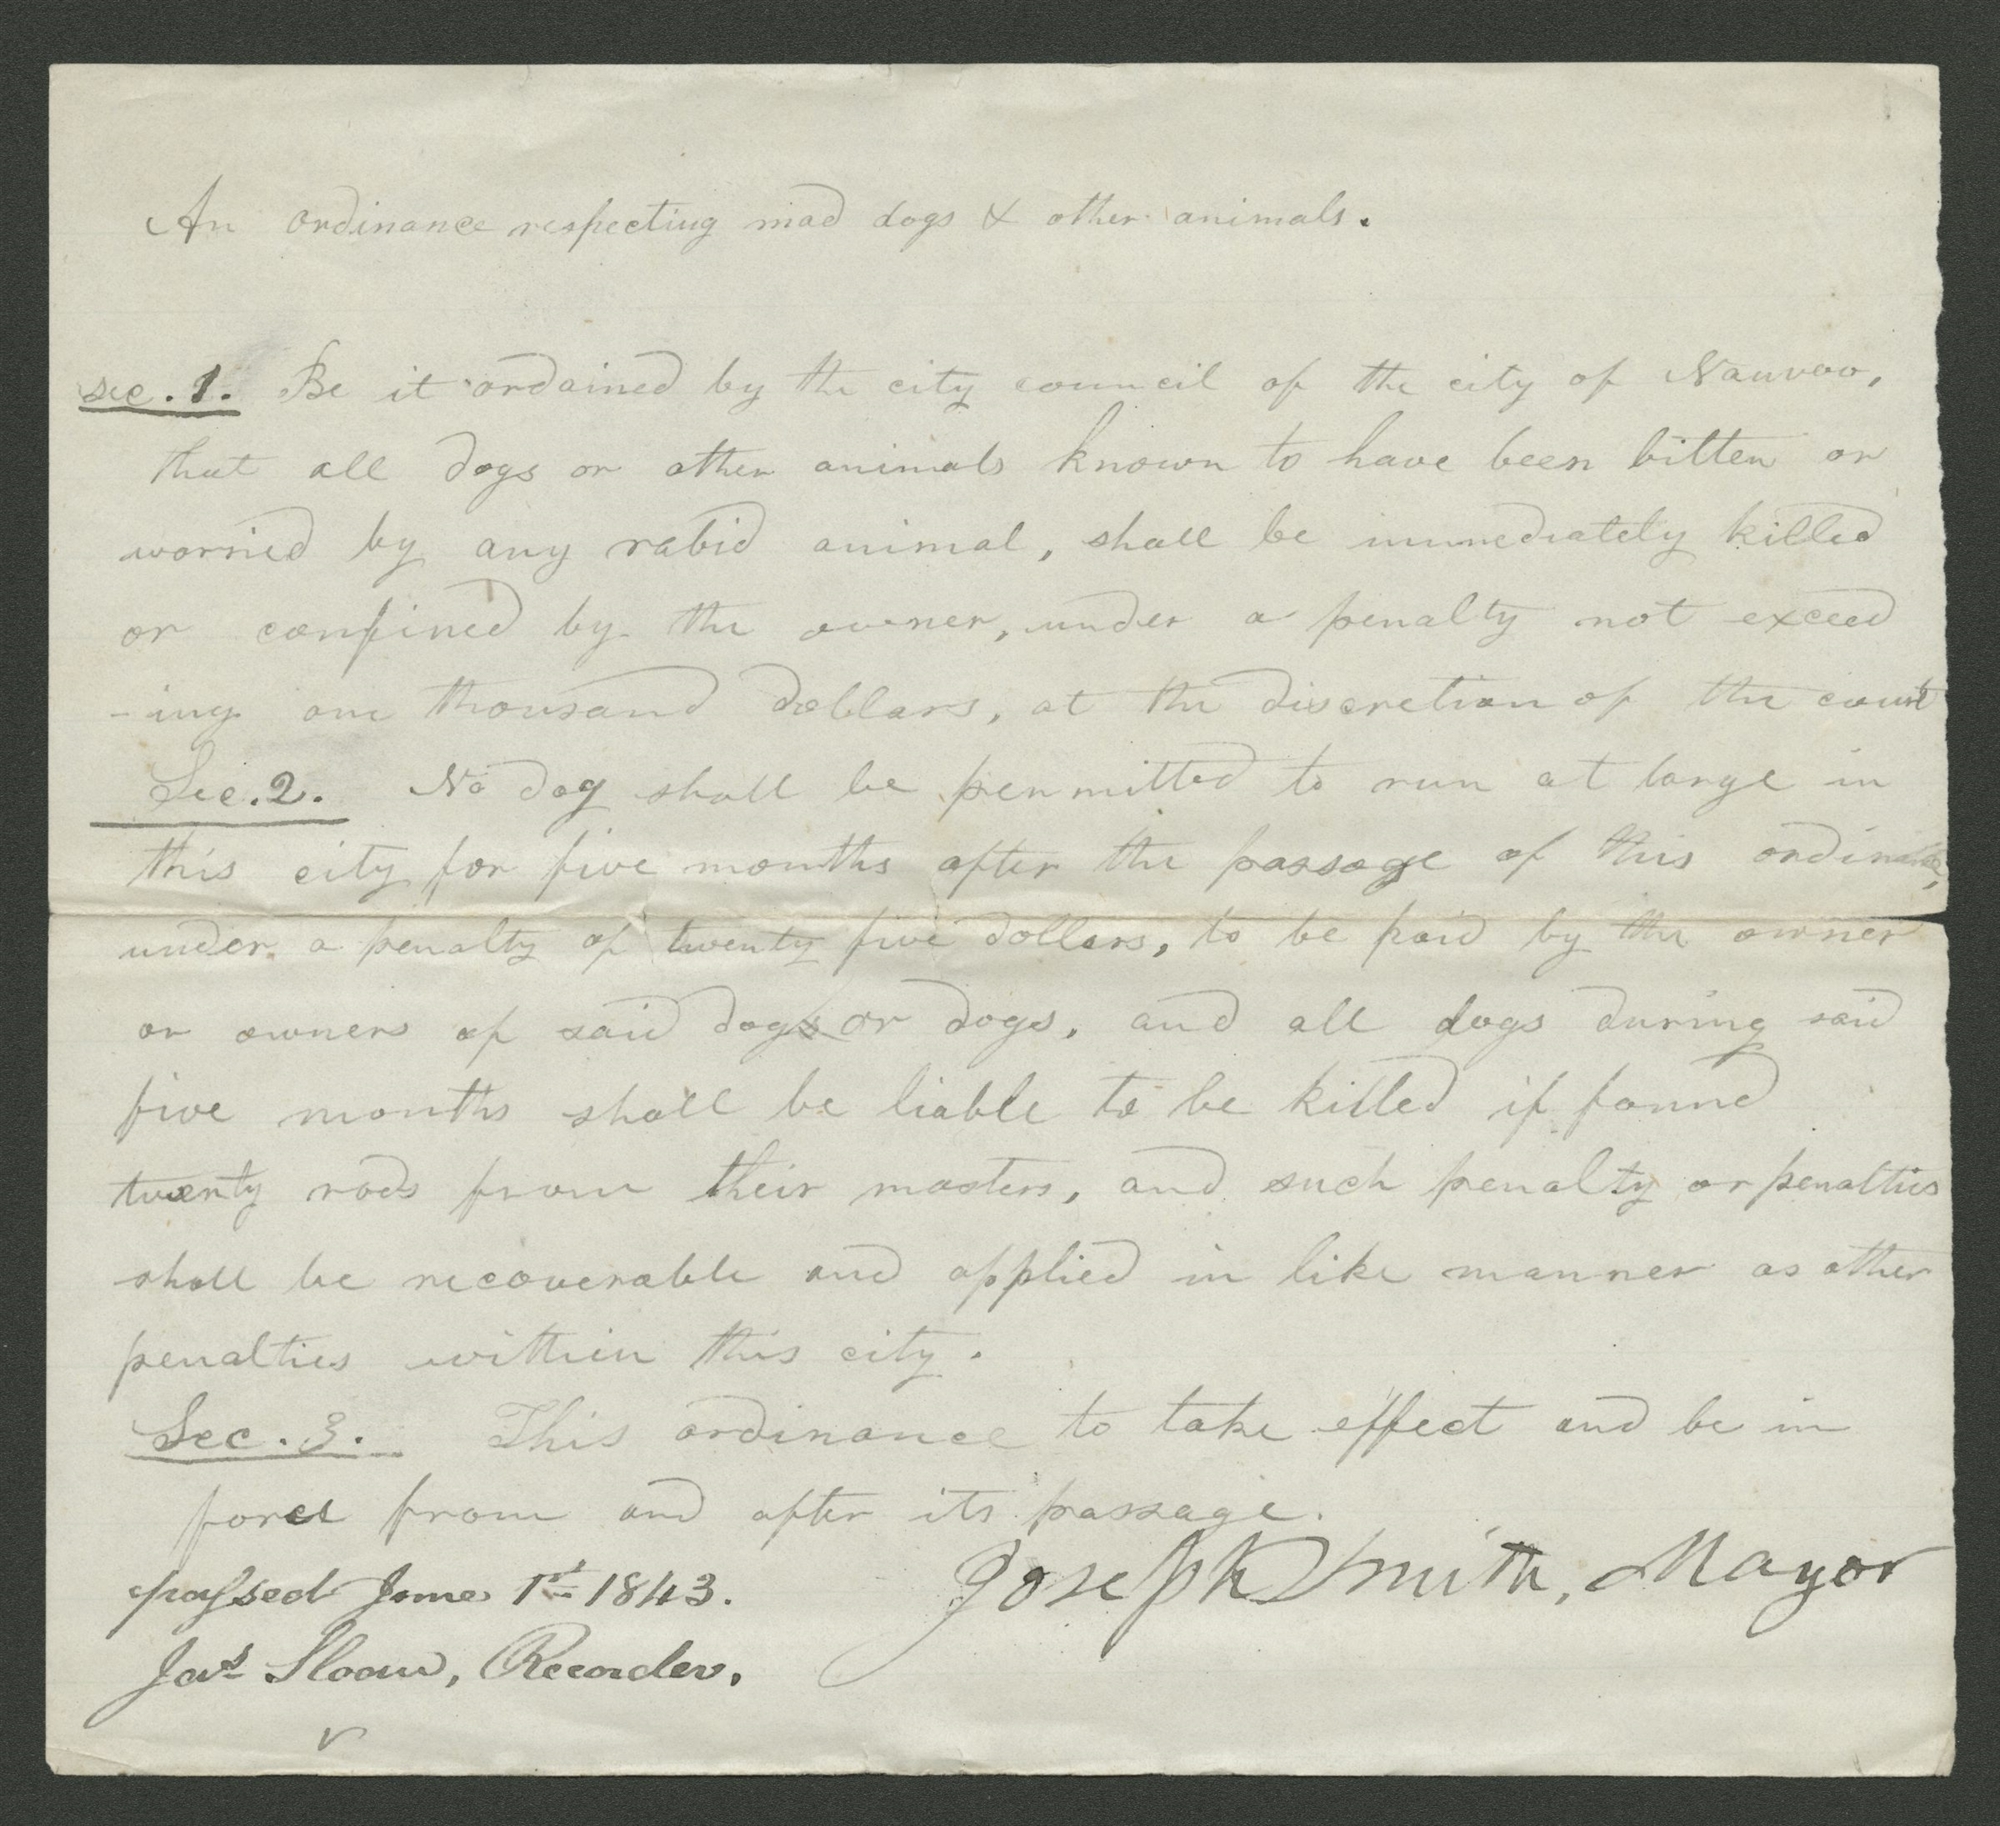 An ordinance respecting mad dogs & other animals.
sec. 1. Be it ordained by the city council of the city of Nauvoo,
that all dogs or other animals known to have been bitten or
worried by any rabid animal, shall be immediately killed
or confined by the owner, under a penalty not exceed
-ing one thousand dollars, at the discretion of the court
Sec. 2. No dog shall be permitted to run at large in
this city for five months after the passage of this ordinance,
under a penalty of twenty five dollars, to be paid by the owner
or owners of said dog or dogs, and all dogs during said
five months shall be liable to be killed if found
twenty rods from their masters, and such penalty or penalties
shall be recoverable and applied in like manner as other
penalties within this city.
Sec. 3. This ordinance to take effect and be in
force from and after its passage.
passed June 1st 1843. Joseph Smith, Mayor
Jas Sloan, Recorder.